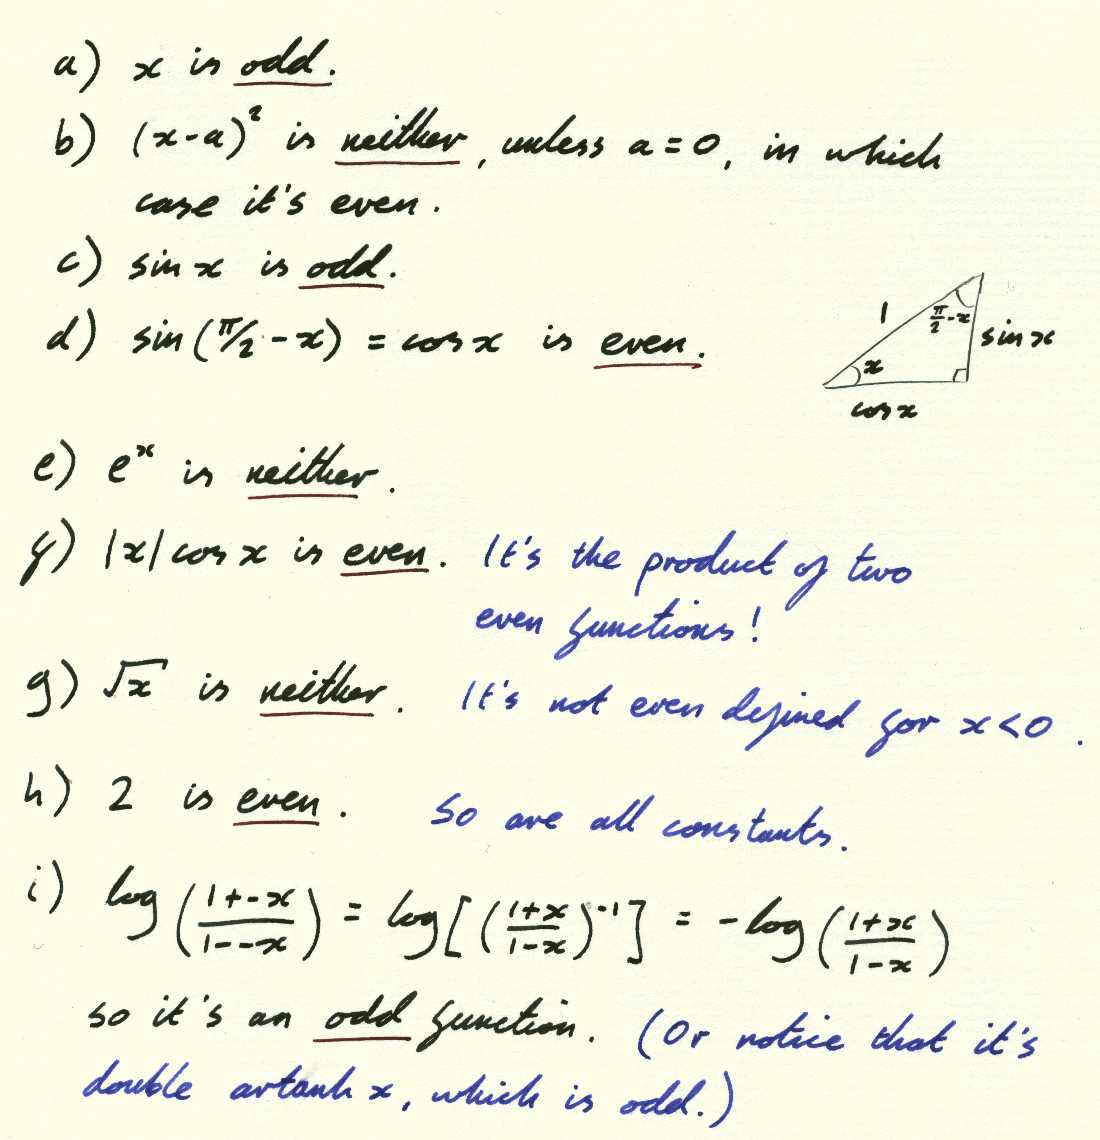 a) x is odd.
b) (x-a)² is neither, unless a=0, in which
case it's even.
c) sin x is odd.
d) sin(π/2 - x) = cos x is even.
1
π/2 - x
sin x
x
cos x
e) eˣ is neither.
f) |x| cos x is even. It's the product of two
even functions!
g) √x is neither. It's not even defined for x<0.
h) 2 is even. So are all constants.
i) log((1+-x)/(1--x)) = log[((1+x)/(1-x))⁻¹] = -log((1+x)/(1-x))
so it's an odd function. (Or notice that it's
double artanh x, which is odd.)